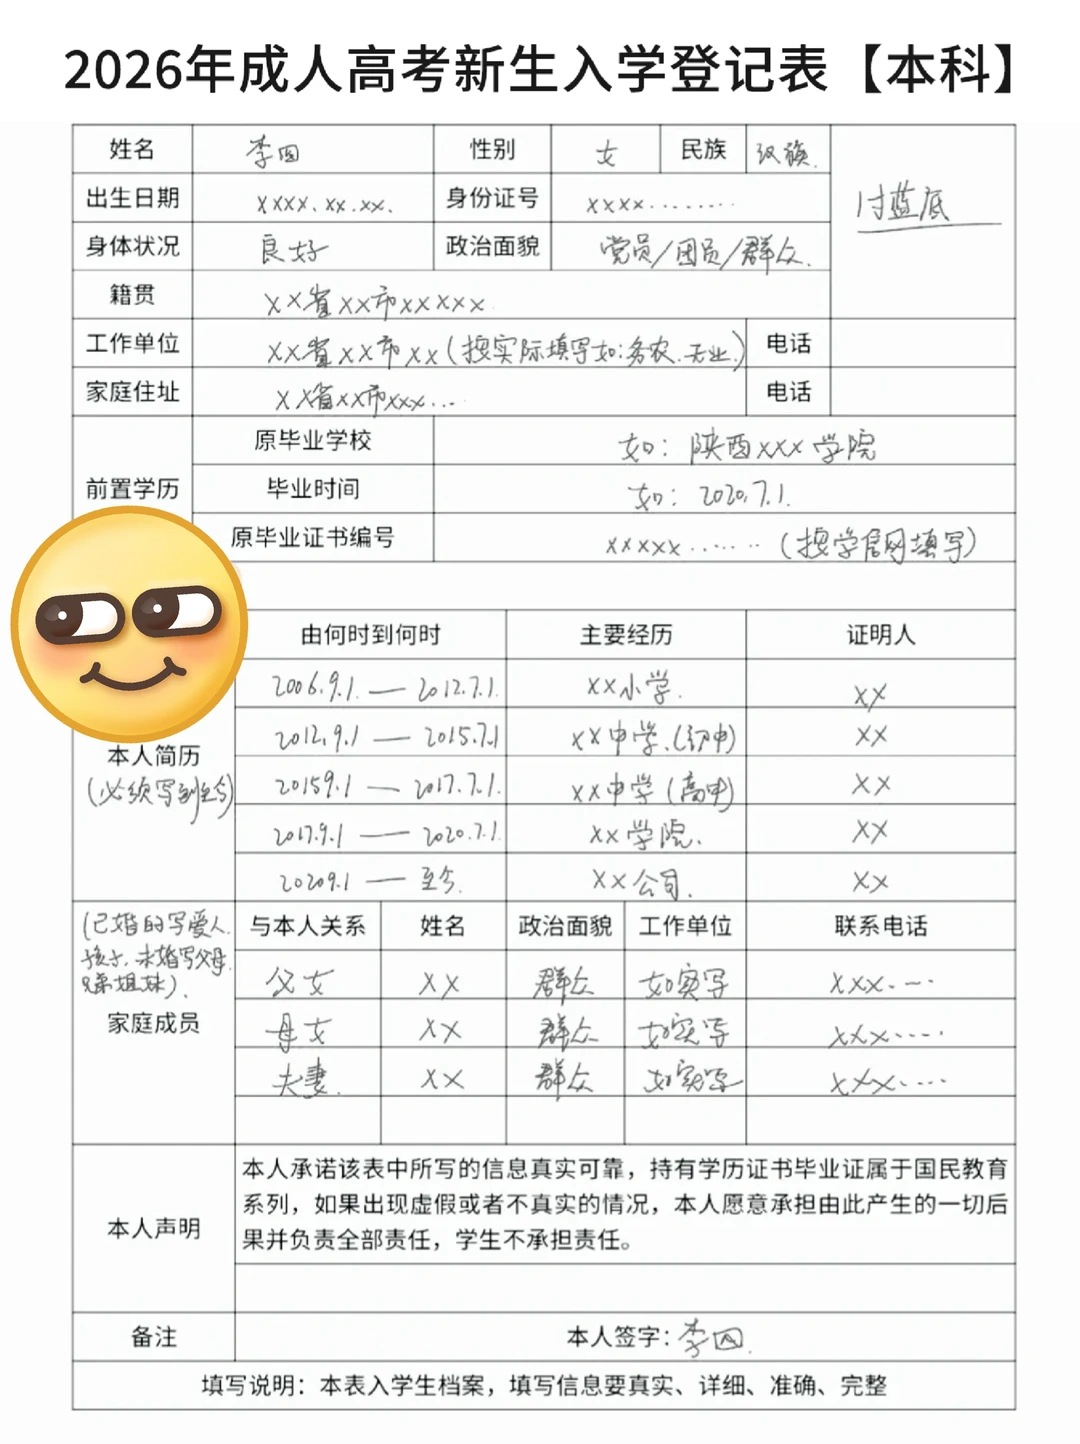 2026年成人高考新生入学登记表【本科】
姓名 李四 性别 女 民族 汉族.
出生日期 xxxx.xx.xx. 身份证号 xxxx........
讨蓝底
身体状况 良好 政治面貌 党员/团员/群众.
籍贯 xx省xx市xxxxx
工作单位 xx省xx市xx(按实际填写如:务农.无业.) 电话
家庭住址 xx省xx市xxx... 电话
前置学历
原毕业学校 如: 陕西xxx学院
毕业时间 如: 2020.7.1.
原毕业证书编号 xxxxx....... (按学信网填写)
本人简历
(必须写到至今)
由何时到何时 主要经历 证明人
2006.9.1. — 2012.7.1. xx小学. xx
2012.9.1 — 2015.7.1 xx中学.(初中) xx
20159.1 — 2017.7.1. xx中学(高中) xx
2017.9.1 — 2020.7.1. xx学院. xx
20209.1 — 至今. xx公司. xx
(已婚的写爱人.
孩子.未婚写父母.
兄弟姐妹).
家庭成员
与本人关系 姓名 政治面貌 工作单位 联系电话
父女 xx 群众 如实写 xxx.--·
母女 xx 群众 如实写 xxx----·
夫妻. xx 群众 如实写 xxx.----
本人声明
本人承诺该表中所写的信息真实可靠，持有学历证书毕业证属于国民教育
系列，如果出现虚假或者不真实的情况，本人愿意承担由此产生的一切后
果并负责全部责任，学生不承担责任。
备注 本人签字：李四.
填写说明：本表入学生档案，填写信息要真实、详细、准确、完整